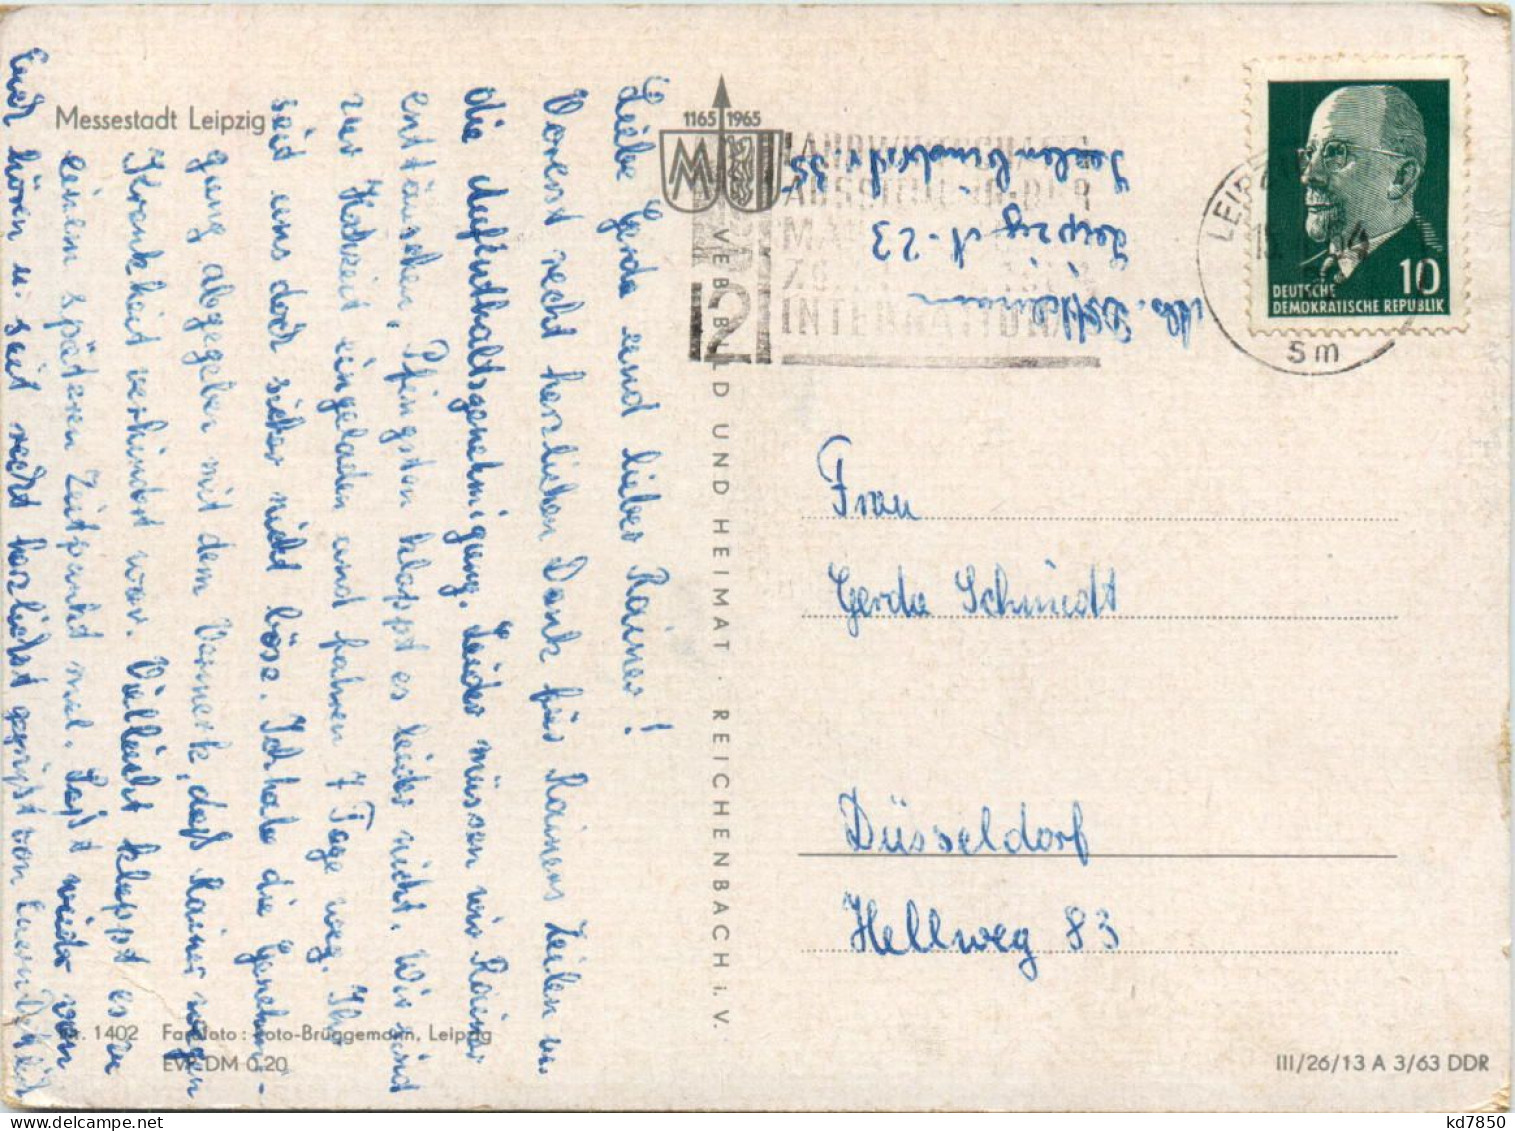 Messestadt Leipzig
Liebe Gerda und lieber Rainer!
Vorerst recht herzlichen Dank für Rainers Zeilen u.
die Aufenthaltsgenehmigung. Leider müssen wir Rainer
enttäuschen, Pfingsten klappt es leider nicht. Wir sind
zur Hochzeit eingeladen und fahren 7 Tage weg. Ihr
seid uns doch sicher nicht böse. Ich habe die Genehmi-
gung abgegeben mit dem Vermerk, daß Rainer wegen
Krankheit verhindert war. Vielleicht klappt es zu
einem späteren Zeitpunkt mal. Laßt wieder von
Euch hören u. seid recht herzlichst gegrüßt von
Nr. 1402 Farbfoto: Foto-Brüggemann, Leipzig
EVP DM 0.20
VEB BILD UND HEIMAT · REICHENBACH i. V.
1165 1965
M M
LANDWIRTSCHAFTS
AUSSTELLUNG DER
INTERNATIONAL
12
Abs.
Leipzig N-23
35
LEIPZIG
5m
10
DEUTSCHE
DEMOKRATISCHE REPUBLIK
Frau
Gerda Schmidt
Düsseldorf
Hellweg 83
III/26/13 A 3/63 DDR
kd7850